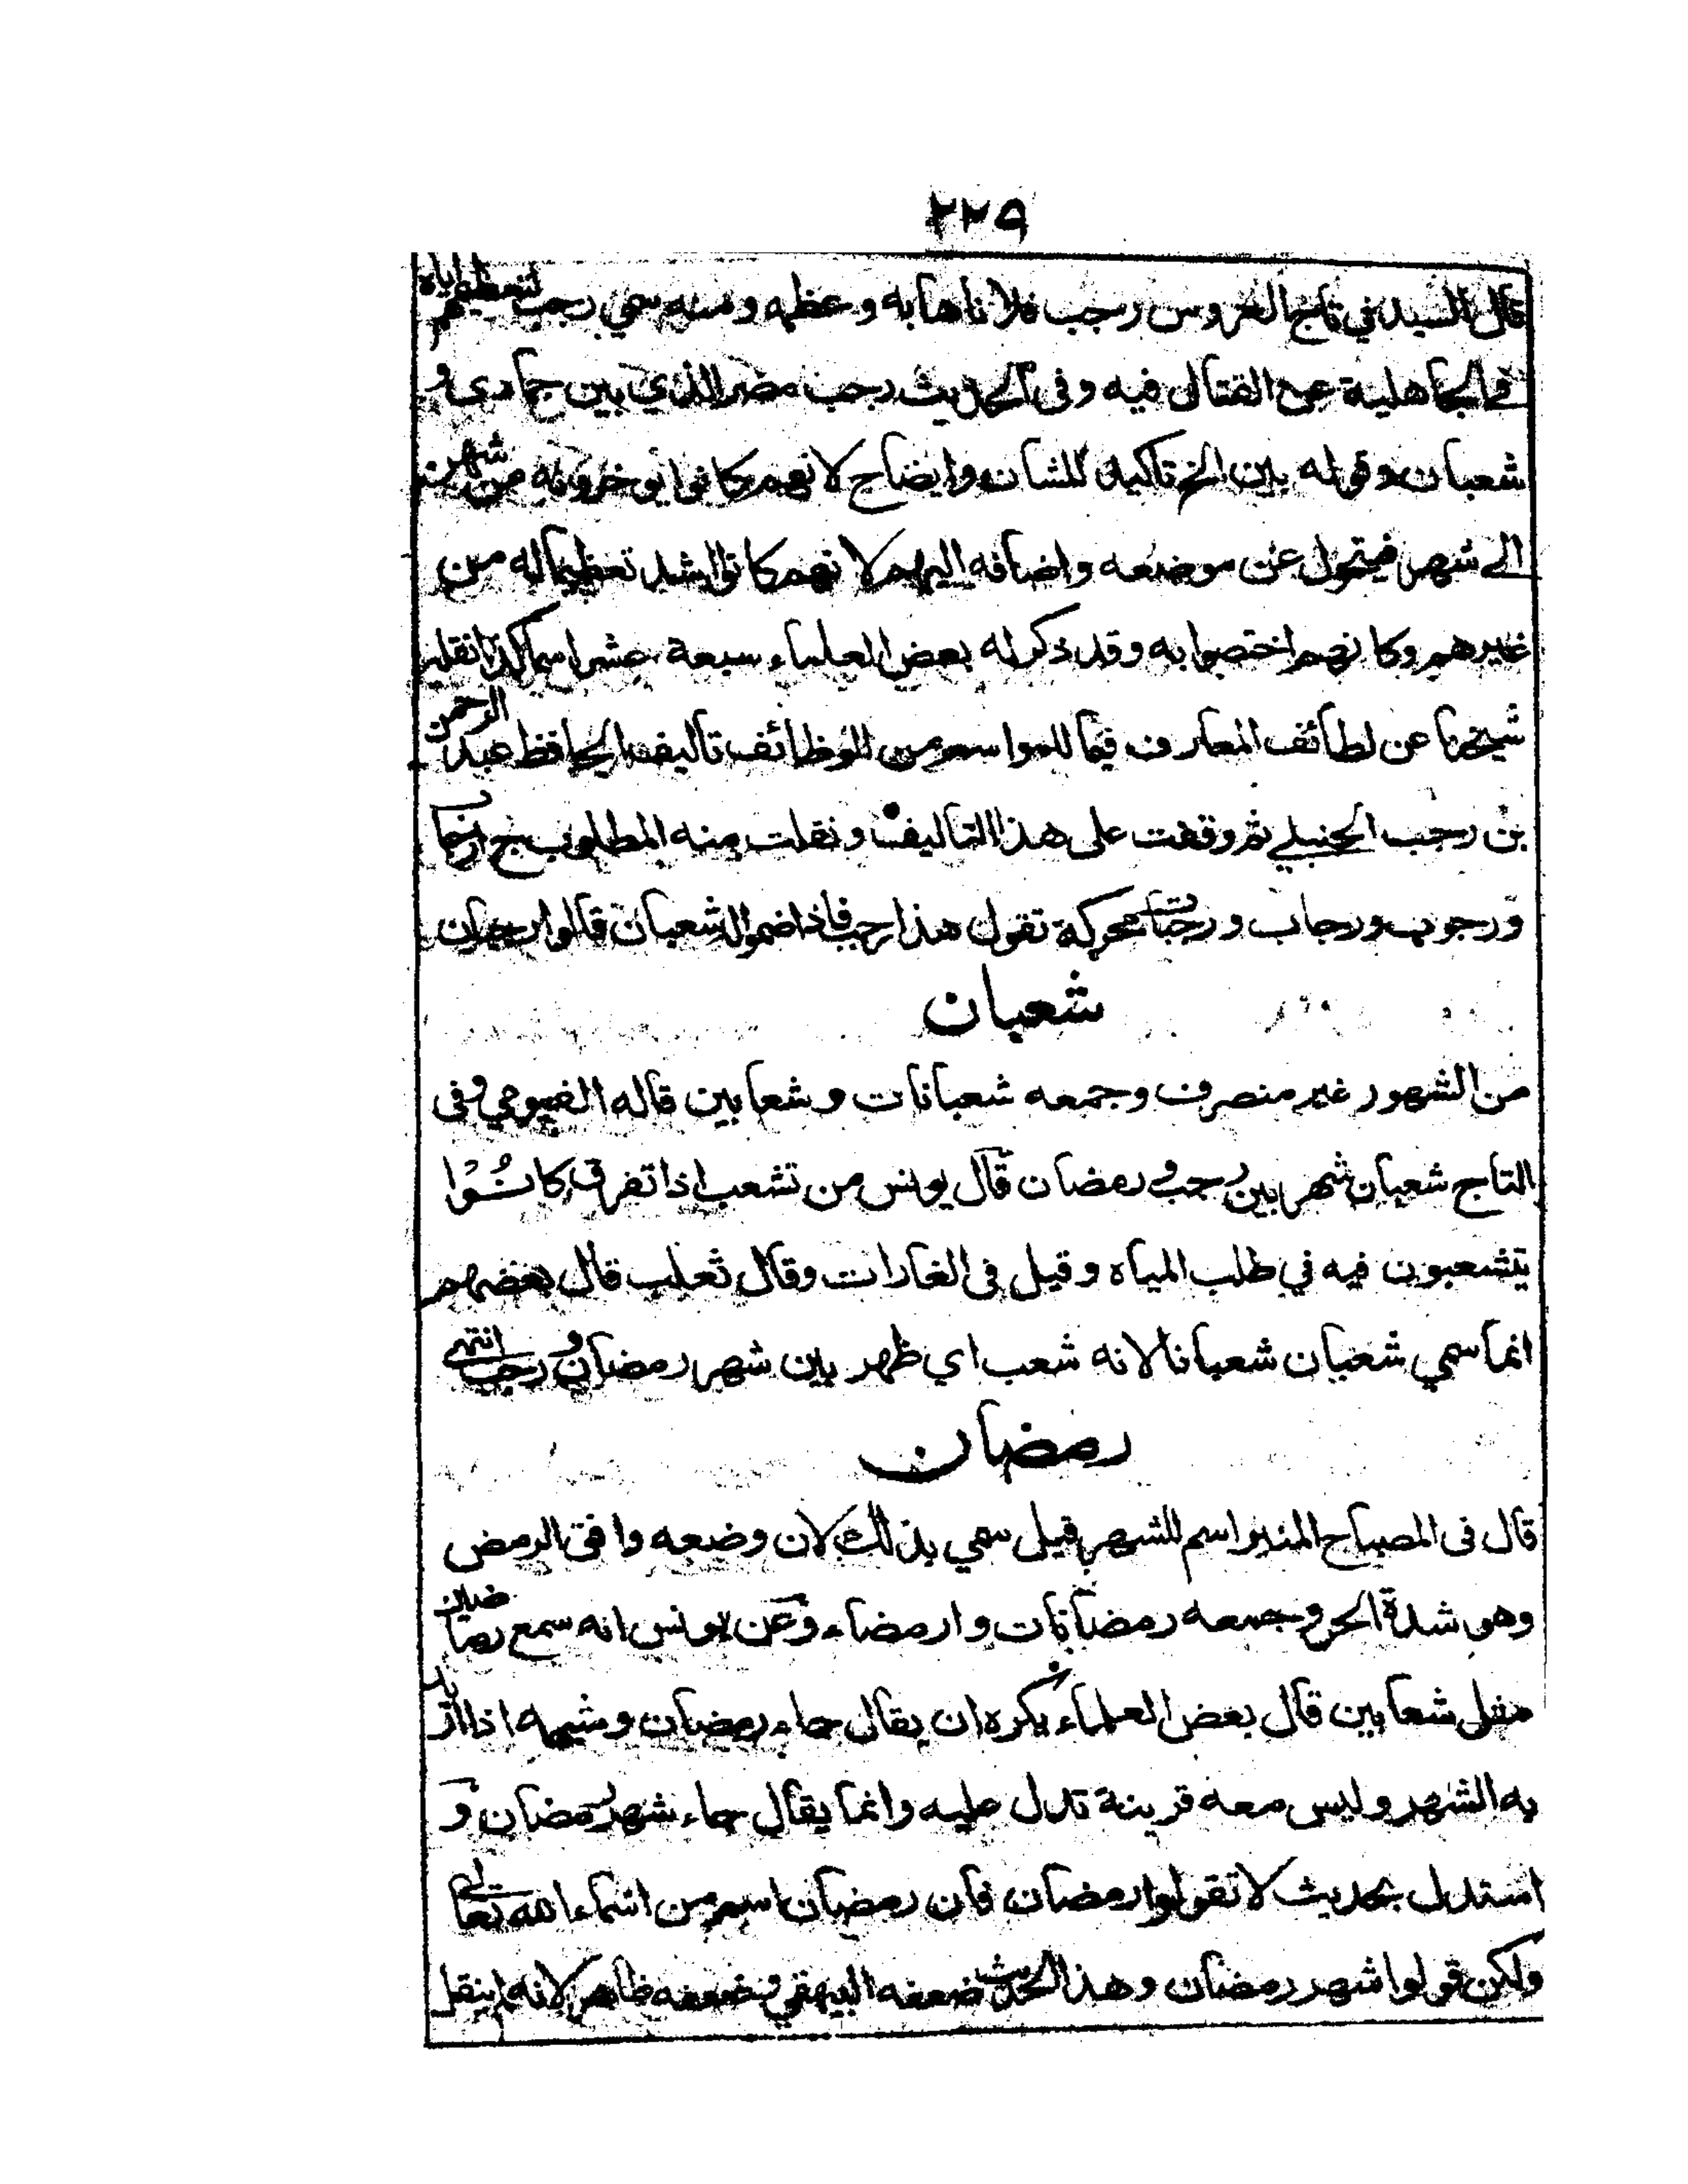 ٢٢٩
قال السيد في تاج العروس رجب فلانا هابه وعظمه ومنه سمي رجب لتعظيمهم اياه
في الجاهلية عن القتال فيه وفى الحديث رجب مضر الذي بين جمادى و
شعبان وقوله بين الخ تاكيد للشان وايضاح لانهم كانوا يوخرونه من شهر
الى شهر فيتحول عن موضعه واضافه اليهم لانهم كانوا اشد تعظيما له من
غيرهم وكانهم اختصوا به وقد ذكر له بعض العلماء سبعة عشر اسما كذا نقله
شيخنا عن لطائف المعارف فيما للمواسم من الوظائف تاليف الحافظ عبد الرحمن
بن رجب الحنبلي ثم وقفت على هذا التاليف ونقلت منه المطلوب ج ارجاب
ورجوب ورجاب ورجبات محركة تقول هذا رجب فاذا ضموا له شعبان قالوا رجبان
شعبان
من الشهور غير منصرف وجمعه شعبانات وشعابين قاله الفيومي وفى
التاج شعبان شهر بين رجب ورمضان قال يونس من تشعب اذا تفرق كانُوْا
يتشعبون فيه في طلب المياه وقيل فى الغارات وقال ثعلب قال بعضهم
انما سمي شعبان شعبانا لانه شعب اي ظهر بين شهر رمضان و رجب انتهى
رمضان
قال فى المصباح المنير اسم للشهر قيل سمي بذلك لان وضعه وافق الرمض
وهو شدة الحر وجمعه رمضانات وارمضاء وعن يونس انه سمع رماضين
مثل شعابين قال بعض العلماء يكره ان يقال جاء رمضان وشبهه اذا اريد
به الشهر وليس معه قرينة تدل عليه وانما يقال جاء شهر رمضان و
استدل بحديث لا تقولوا رمضان فان رمضان اسم من اسماء الله تعالى
ولكن قولوا شهر رمضان وهذا الحديث ضعفه البيهقي وضعفه ظاهر لانه لم ينقل